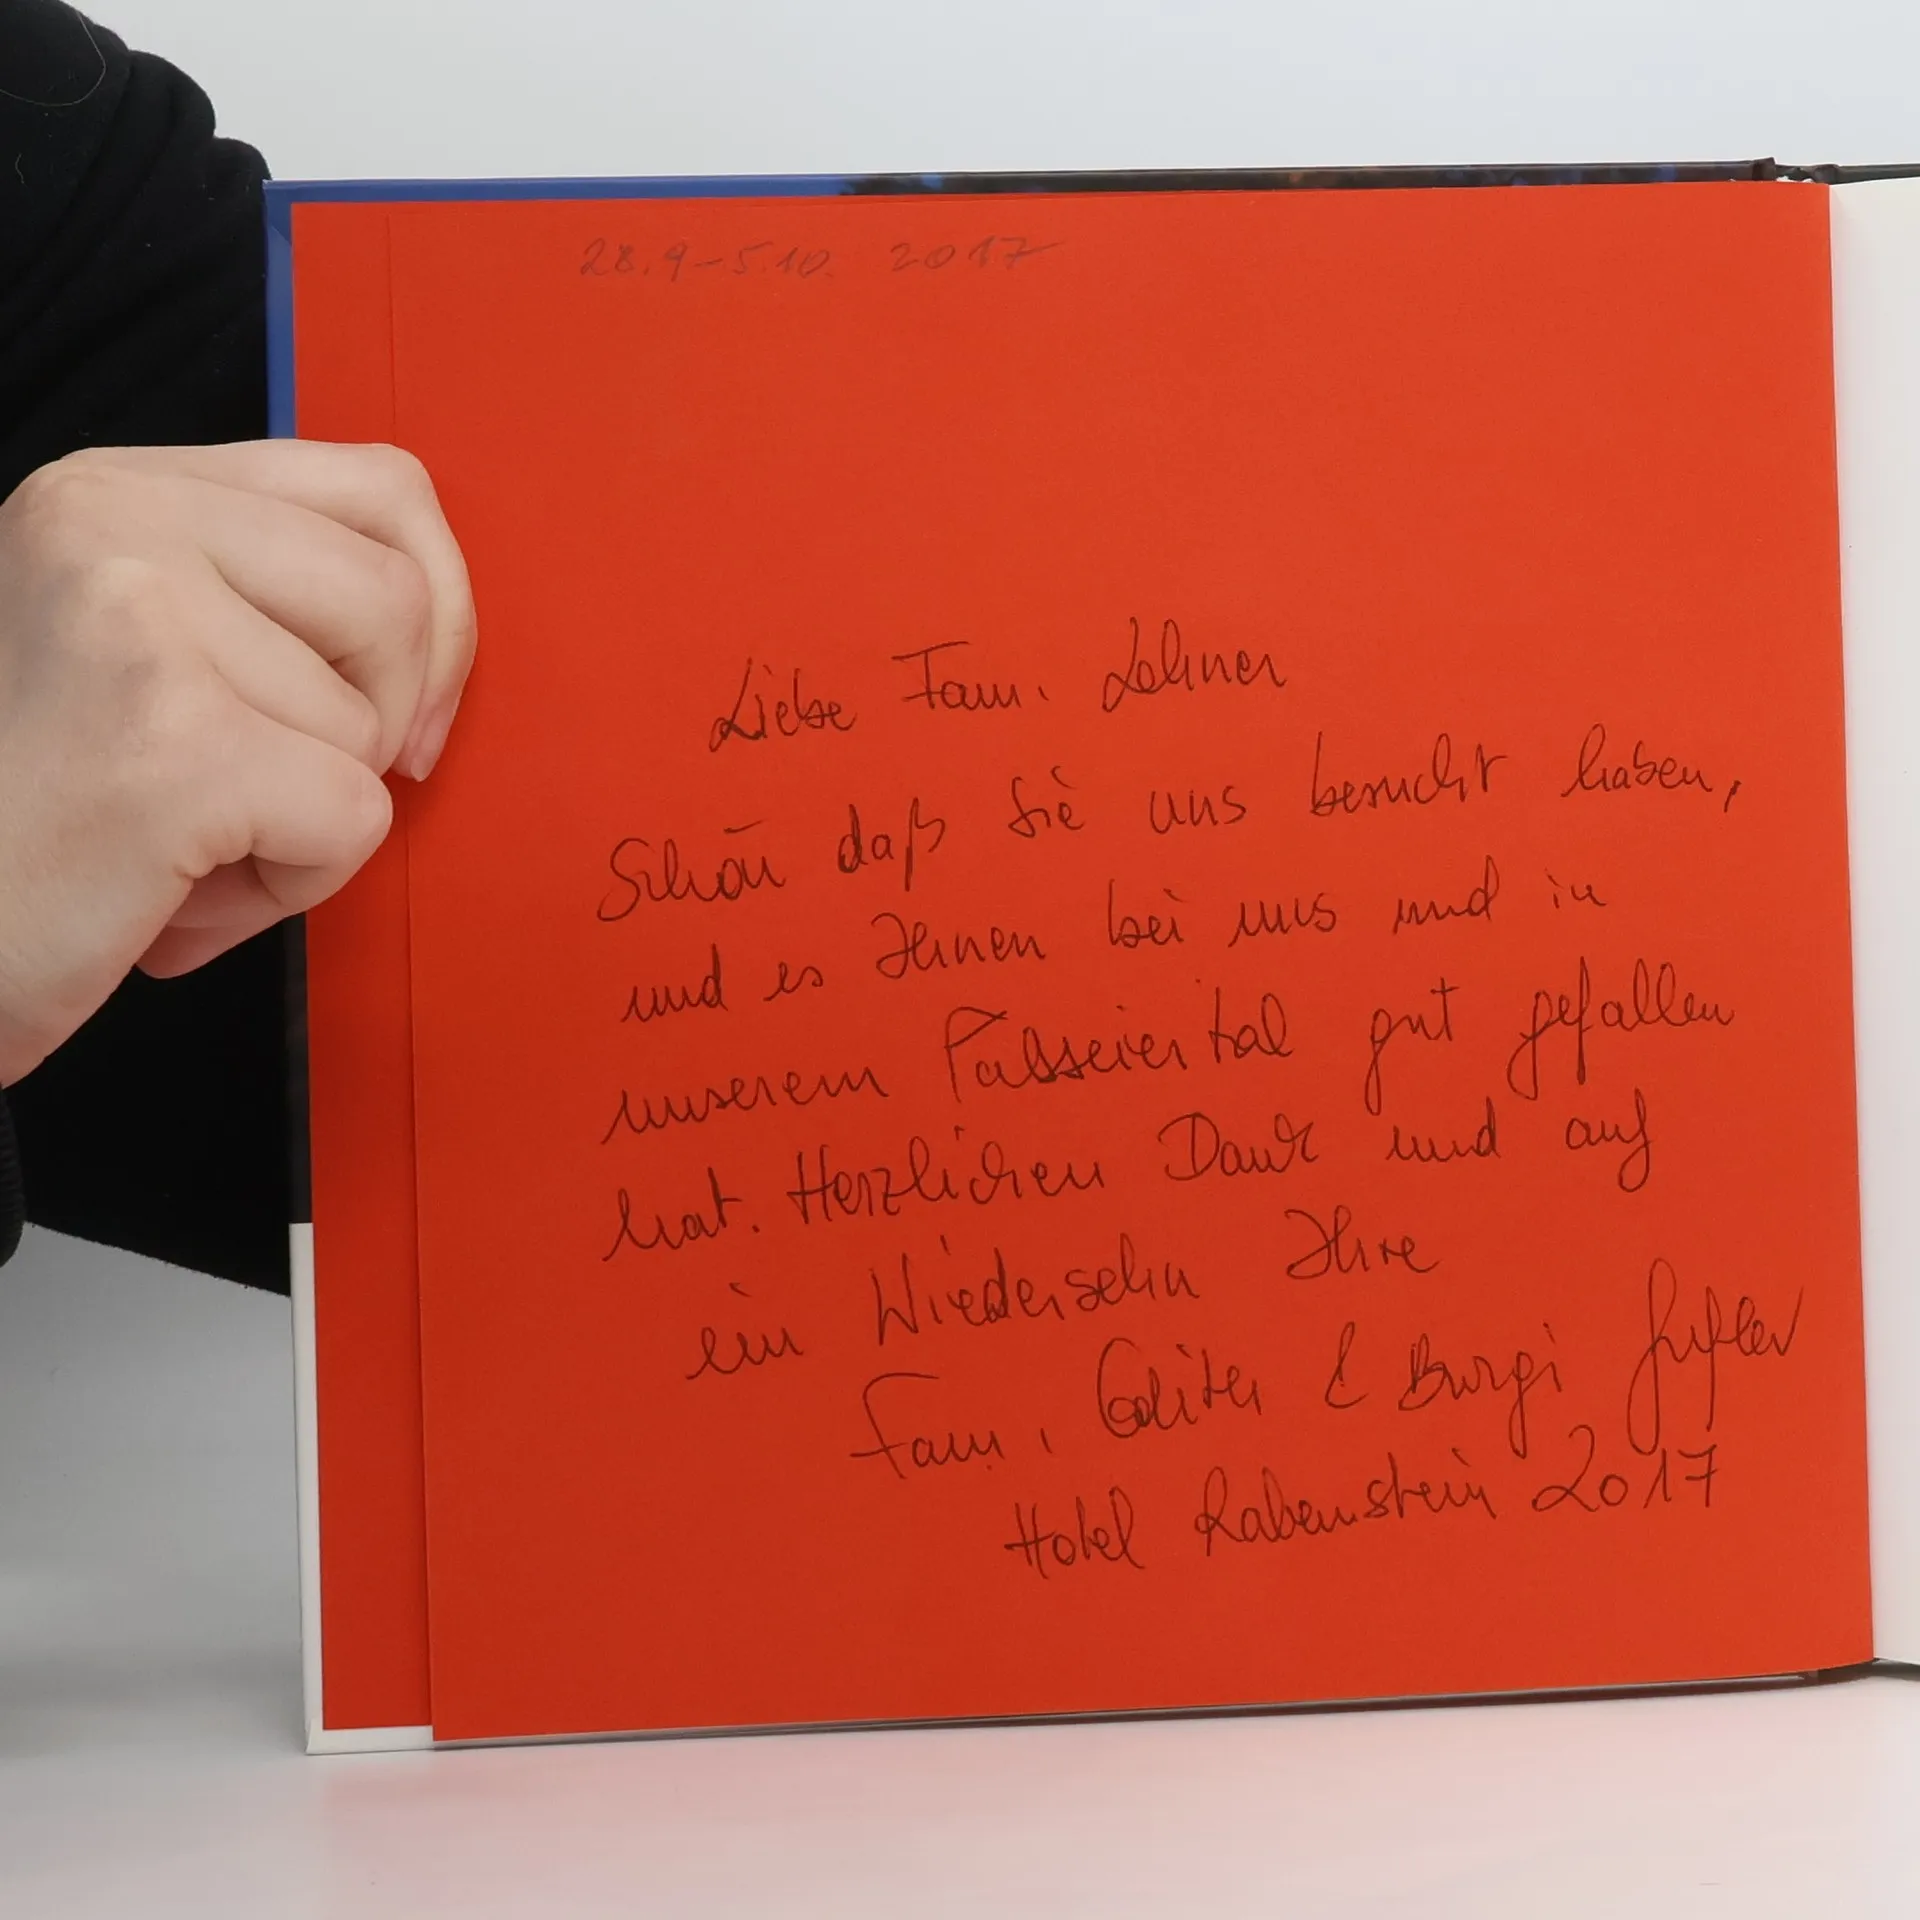 28.9-5.10. 2017
Liebe Fam. Lehner
Schön daß Sie uns besucht haben,
und es Ihnen bei uns und in
unserem Passeiertal gut gefallen
hat. Herzlichen Dank und auf
ein Wiedersehn Ihre
Fam. & Burgi
Hotel Rabenstein 2017